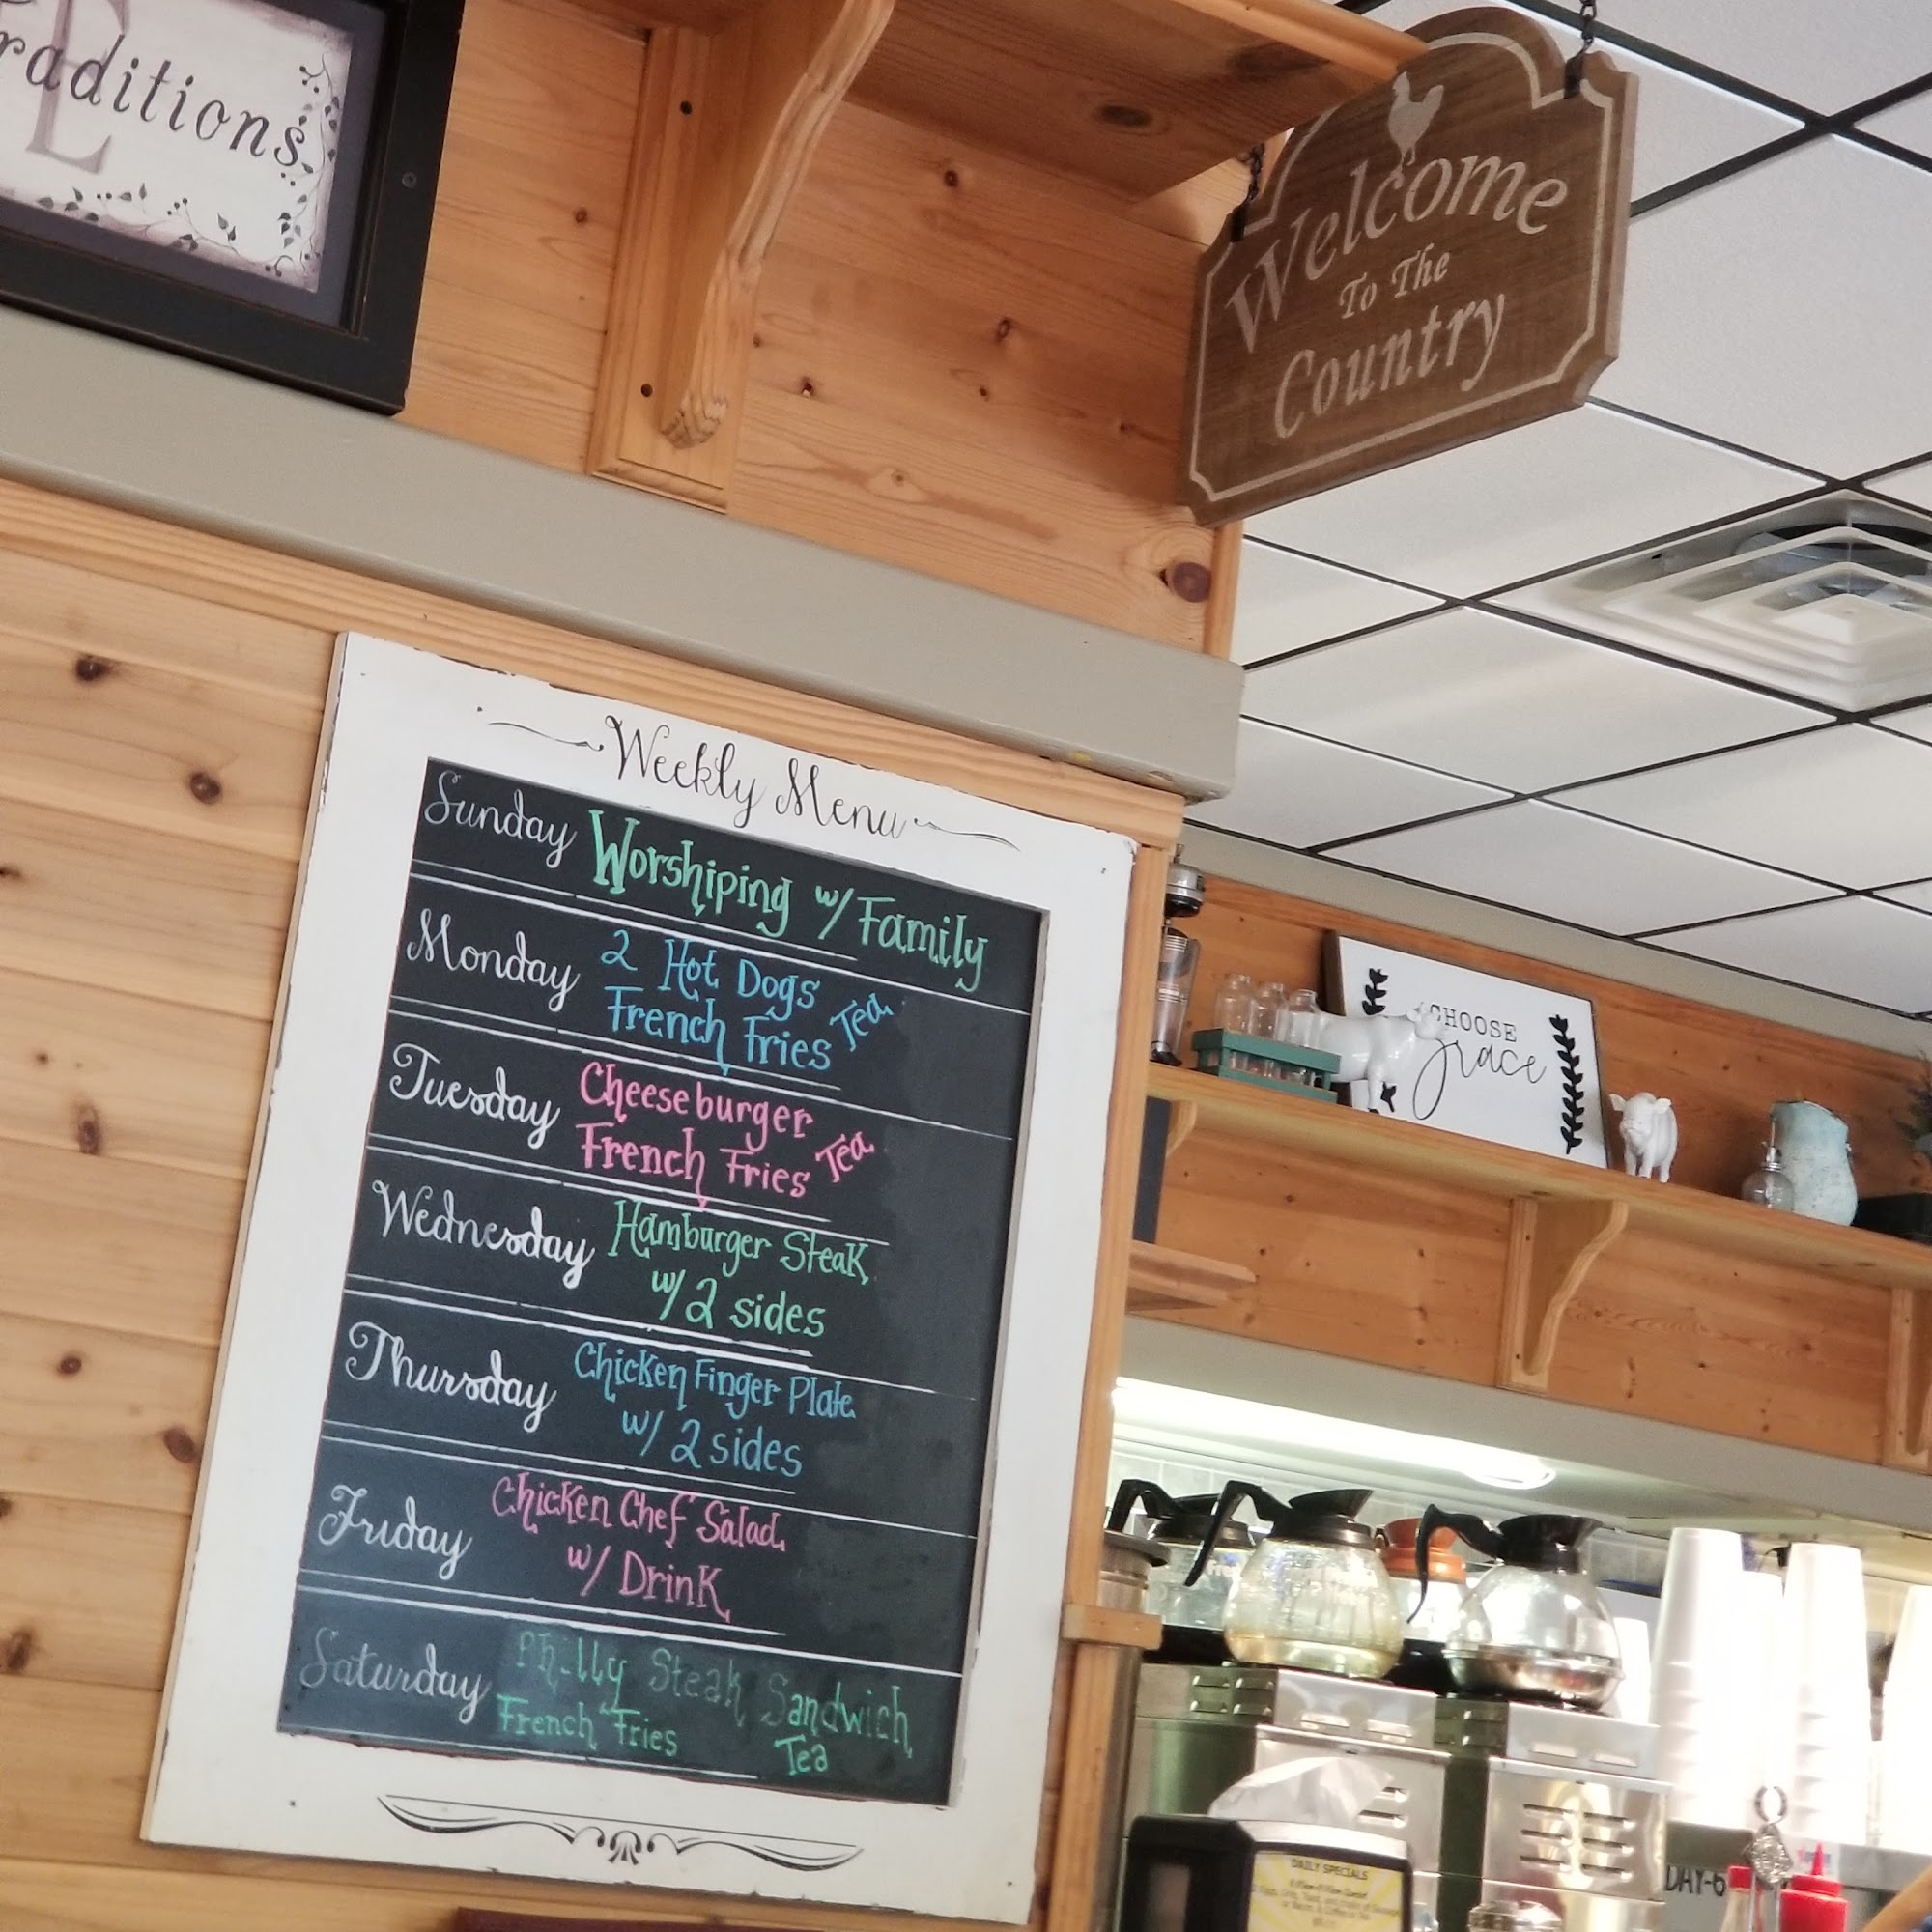 raditions
Welcome
To The
Country
Weekly Menu
Sunday Worshiping w/ Family
Monday 2 Hot Dogs
French Fries Tea
Tuesday Cheeseburger
French Fries Tea
Wednesday Hamburger Steak
w/ 2 sides
Thursday Chicken Finger Plate
w/ 2 sides
Friday Chicken Chef Salad
w/ Drink
Saturday Philly Steak Sandwich
French Fries Tea
CHOOSE
grace
DAILY SPECIALS
DAY-6